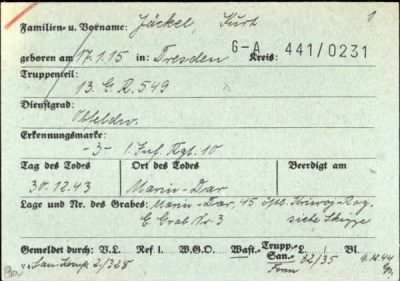 1
Familien- u. Vorname: Jäckel, Kurt
geboren am 17.1.15 in: Dresden Kreis: G-A 441/0231
Truppenteil:
13. G.R. 549
Dienstgrad:
Obfeldw.
Erkennungsmarke:
-3- 1. Inf. Rgt. 10
Tag des Todes Ort des Todes Beerdigt am
30.12.43 Mariu-Dar
Lage und Nr. des Grabes: Mariu-Dar, 45 Krivoy-Rog,
E Grab Nr. 3 siehe Skizze
Gemeldet durch: V.L. Ref I. W.G.O. Wast. Trupp. L. Bl
San. 82/35 9.12.44
v. San. Komp. 2/328